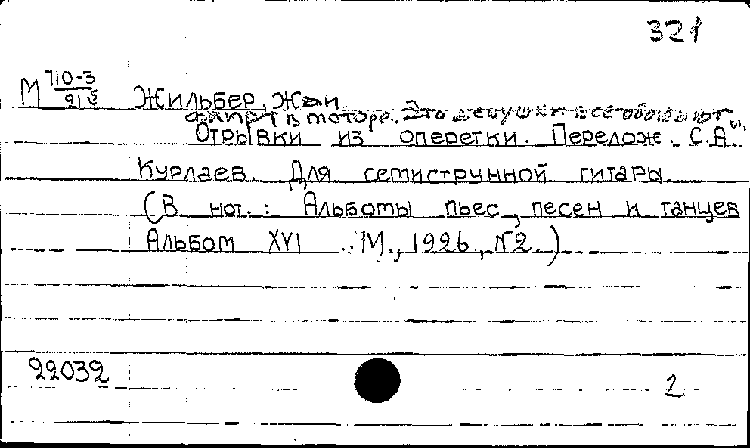 321
М 710-3
Жильбер, Жан
218
Флирт в моторе. Это девушки все обожают.
Отрывки из оперетки. Перелож. С.А.
Курлаев. Для семиструнной гитары.
(В нот.: Альбомы пьес, песен и танцев
Альбом XVI .. М., 1926, №2.)
22032
2